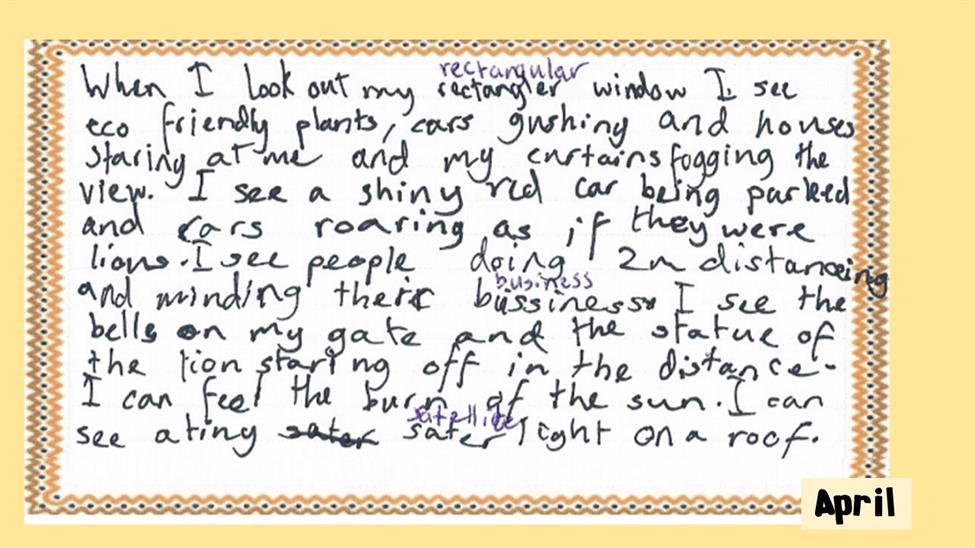 rectangular
When I look out my rectangler window I see
eco friendly plants, cars gushing and houses
staring at me and my curtains fogging the
view. I see a shiny red car being parked
and cars roaring as if they were
lions. I see people doing 2m distanceing
business
and minding their bussiness. I see the
bells on my gate and the statue of
the lion staring off in the distance.
I can feel the burn of the sun. I can
satellite
see a tiny sater sater light on a roof.
April